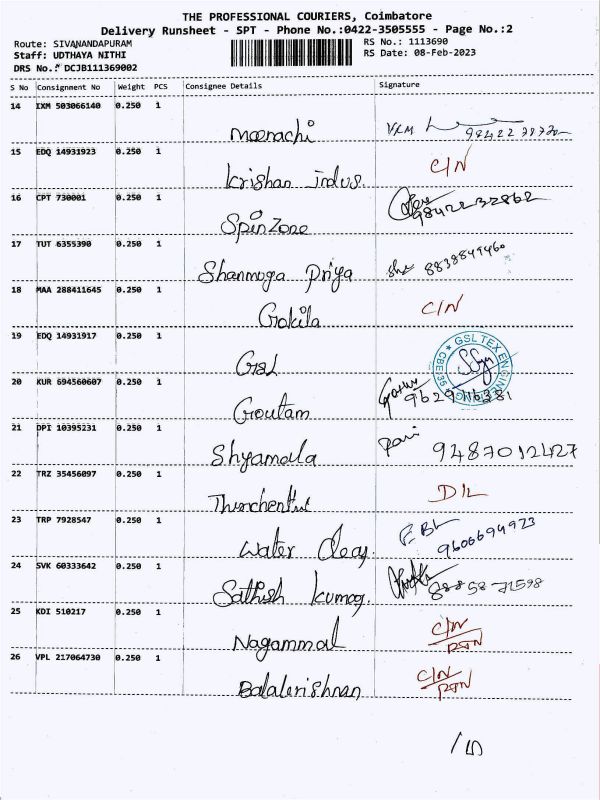 THE PROFESSIONAL COURIERS, Coimbatore
Delivery Runsheet - SPT - Phone No.:0422-3505555 - Page No.:2
Route: SIVANANDAPURAM RS No.: 1113690
Staff: UDTHAYA NITHI RS Date: 08-Feb-2023
DRS No.: DCJB111369002
S No Consignment No Weight PCS Consignee Details Signature
14 IXM 503066140 0.250 1 Meenachi VKM
15 EDQ 14931923 0.250 1 Krishan indus. C/N
16 CPT 730001 0.250 1 Spinzone 9842232862
17 TUT 6355390 0.250 1 Shanmuga Priya 8838849460
18 MAA 288411645 0.250 1 Gokila C/N
19 EDQ 14931917 0.250 1 GSL GSL TEX ENGINEERING
20 KUR 694560607 0.250 1 Goutam
21 DPI 10395231 0.250 1 Shyamala 9487012427
22 TRZ 35456097 0.250 1 D/L
23 TRP 7928547 0.250 1 Water 9606694923
24 SVK 60333642 0.250 1 Sathish Kumar. 88858 71598
25 KDI 510217 0.250 1 Nagammal C/N RTN
26 VPL 217064730 0.250 1 Balakrishnan C/N RTN